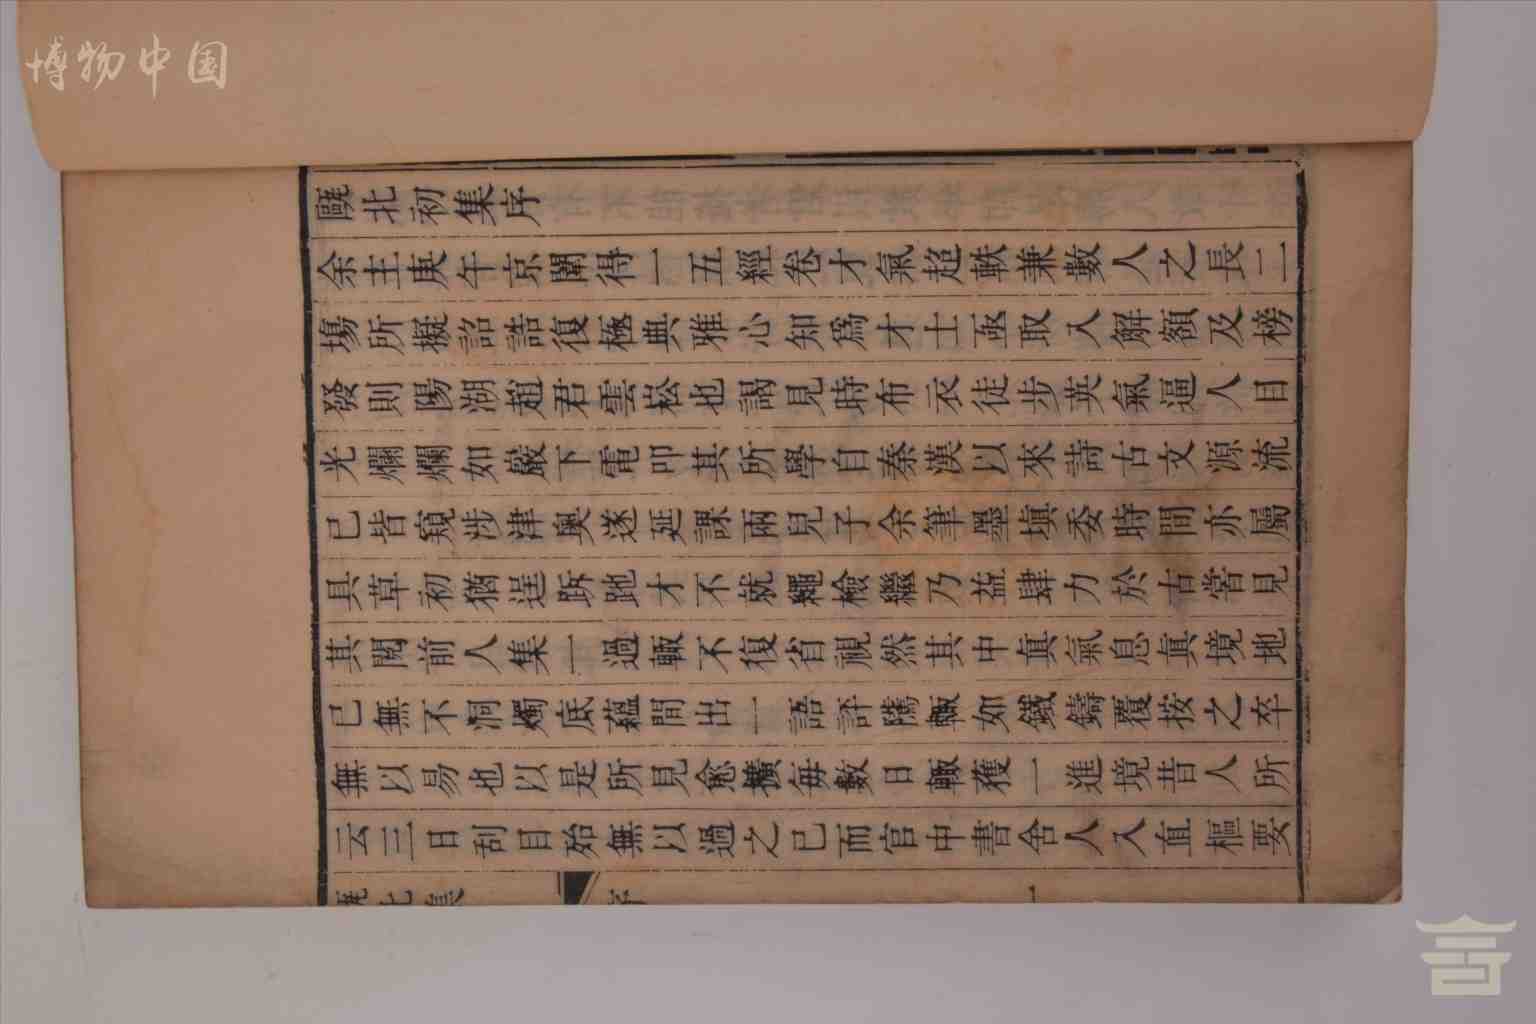 博物中国
甌北初集序
余主庚午京闈得一五經卷才氣超軼兼數人之長二
場所擬詔誥復極典雅心知爲才士亟取入解額及榜
發則陽湖趙君雲崧也謁見時布衣徒步英氣逼人目
光爛爛如巖下電叩其所學自秦漢以來詩古文源流
已皆窺涉津奧遂延課兩兒子余筆墨塡委時間亦屬
具草初猶逞跅跑才不就繩檢繼乃益肆力於古嘗見
其閱前人集一過輒不復省視然其中眞氣息眞境地
已無不洞燭底蘊間出一語評騭輒如鐵鑄覆按之卒
無以易也以是所見愈擴每數日輒獲一進境昔人所
云三日刮目殆無以過之已而官中書舍人入直樞要
甌北集 序 一